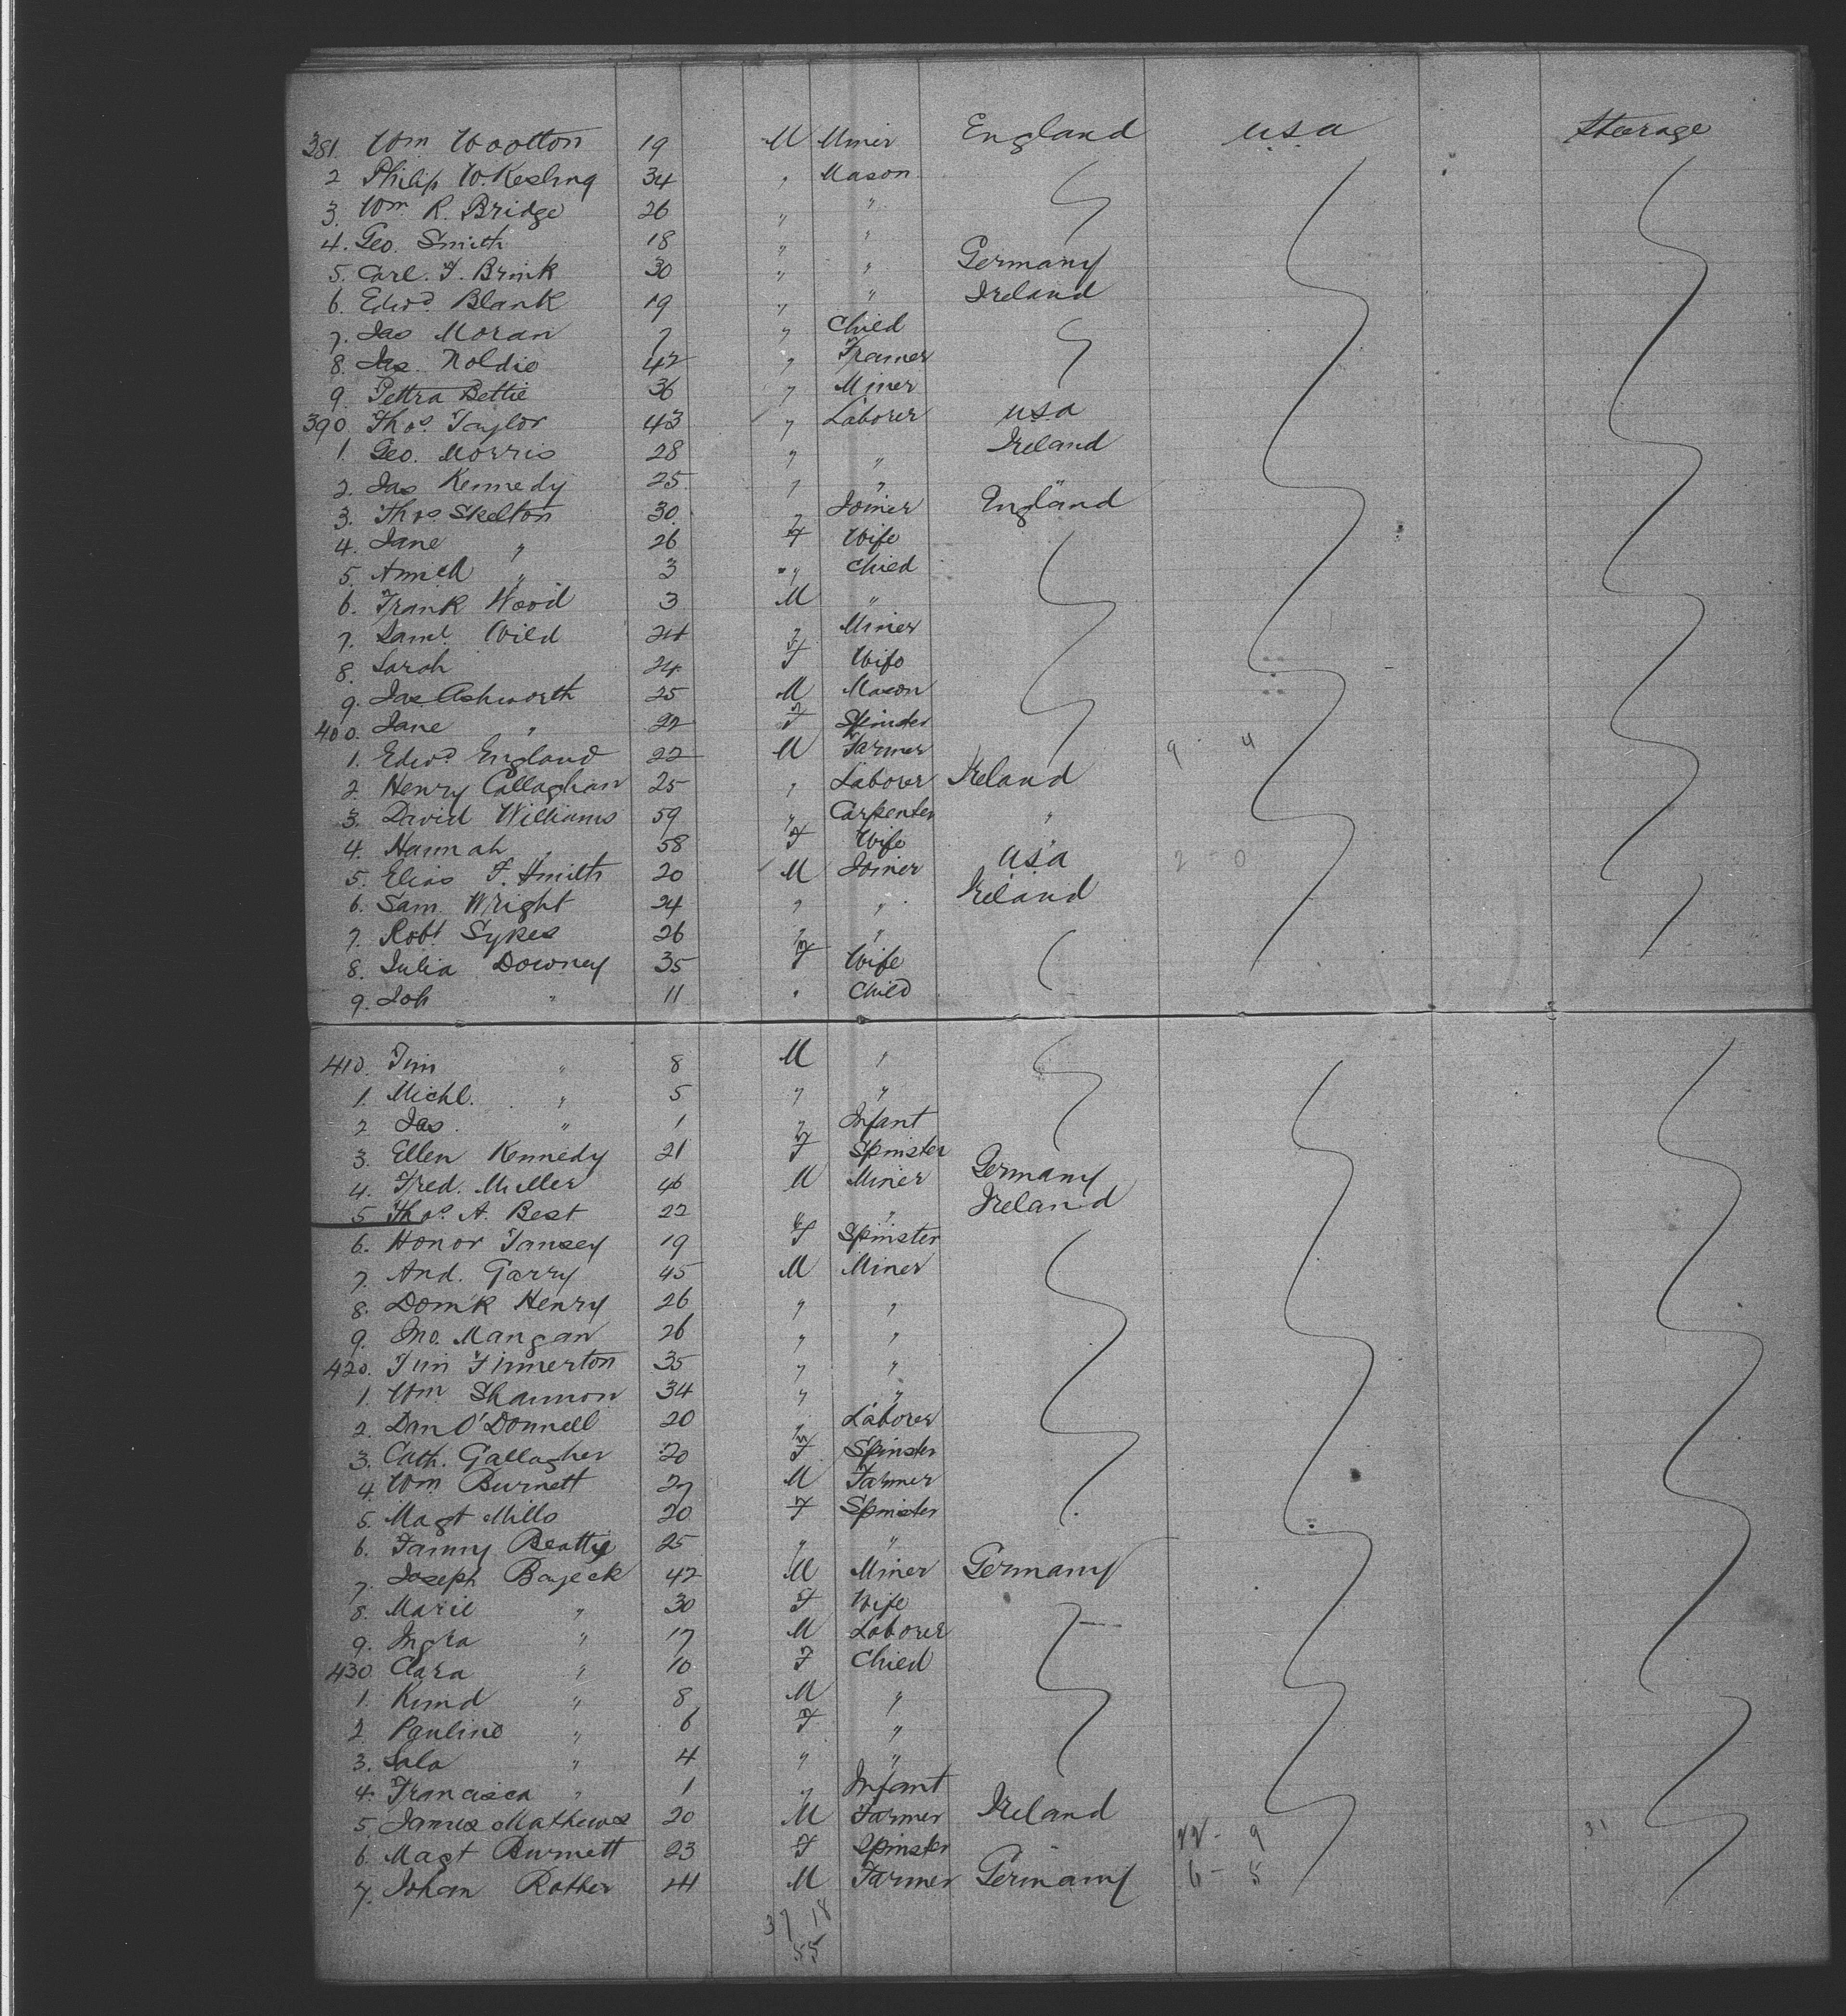 381. Wm Wootton 19 M Miner England USA Steerage
2 Philip W. Kesling 34 " Mason
3. Wm R. Bridge 26 " "
4. Geo. Smith 18 " "
5. Carl. F. Brink 30 " " Germany
6. Edwd Blank 19 " " Ireland
7. Jas Moran 7 " Child
8. Jas. Noldie 42 " Framer
9. Pettra Bettie 36 " Miner
390. Thos. Taylor 43 " Laborer USA
1. Geo. Morris 28 " " Ireland
2. Jas Kennedy 25 " " "
3. Thos Skelton 30 " Joiner England
4. Jane " 26 F Wife
5. " 3 " Child
6. Frank Wood 3 M "
7. Saml. Wild 24 " Miner
8. Sarah 24 F Wife
9. Jas Ashworth 25 M Mason
400. Jane " 22 F Spinster
1. Edwd England 22 M Farmer 9 4
2. Henry Callaghan 25 " Laborer Ireland
3. David Williams 59 " Carpenter "
4. Hannah " 58 F Wife "
5. Elias F. Smith 20 M Joiner USA 2 0
6. Sam. Wright 24 " " Ireland
7. Robt Sykes 26 " "
8. Julia Downey 35 F Wife
9. Joh " 11 " Child
410. Tim " 8 M "
1. Michl. " 5 " "
2 Jas. " 1 " Infant
3. Ellen Kennedy 21 F Spinster
4. Fred. Muller 46 M Miner Germany
5 Thos. A. Best 22 " " Ireland
6. Honor Tansey 19 F Spinster
7. And. Garry 45 M Miner
8. Domk Henry 26 " "
9. Jno. Mangan 26 " "
420. Tim Finnerton 35 " "
1. Wm Shannon 34 " "
2. Dan O'Donnell 20 " Laborer
3. Cath. Gallagher 20 F Spinster
4. Wm Burnett 27 M Farmer
5. Magt Mills 20 F Spinster
6. Fanny Beattie 25 " "
7. Joseph Bayeck 42 M Miner Germany
8. Marie " 30 F Wife
9. Ingra " 17 M Laborer
430. Clara " 10 F Child
1. Rumd " 8 M "
2 Pauline " 6 F "
3. Sala " 4 " "
4. Francisca " 1 " Infant
5. James Mathews 20 M Farmer Ireland
6. Magt Burnett 23 F Spinster 22 - 9 31
7. Johan Rother 44 M Farmer Germany 6 - 5
37 18
55